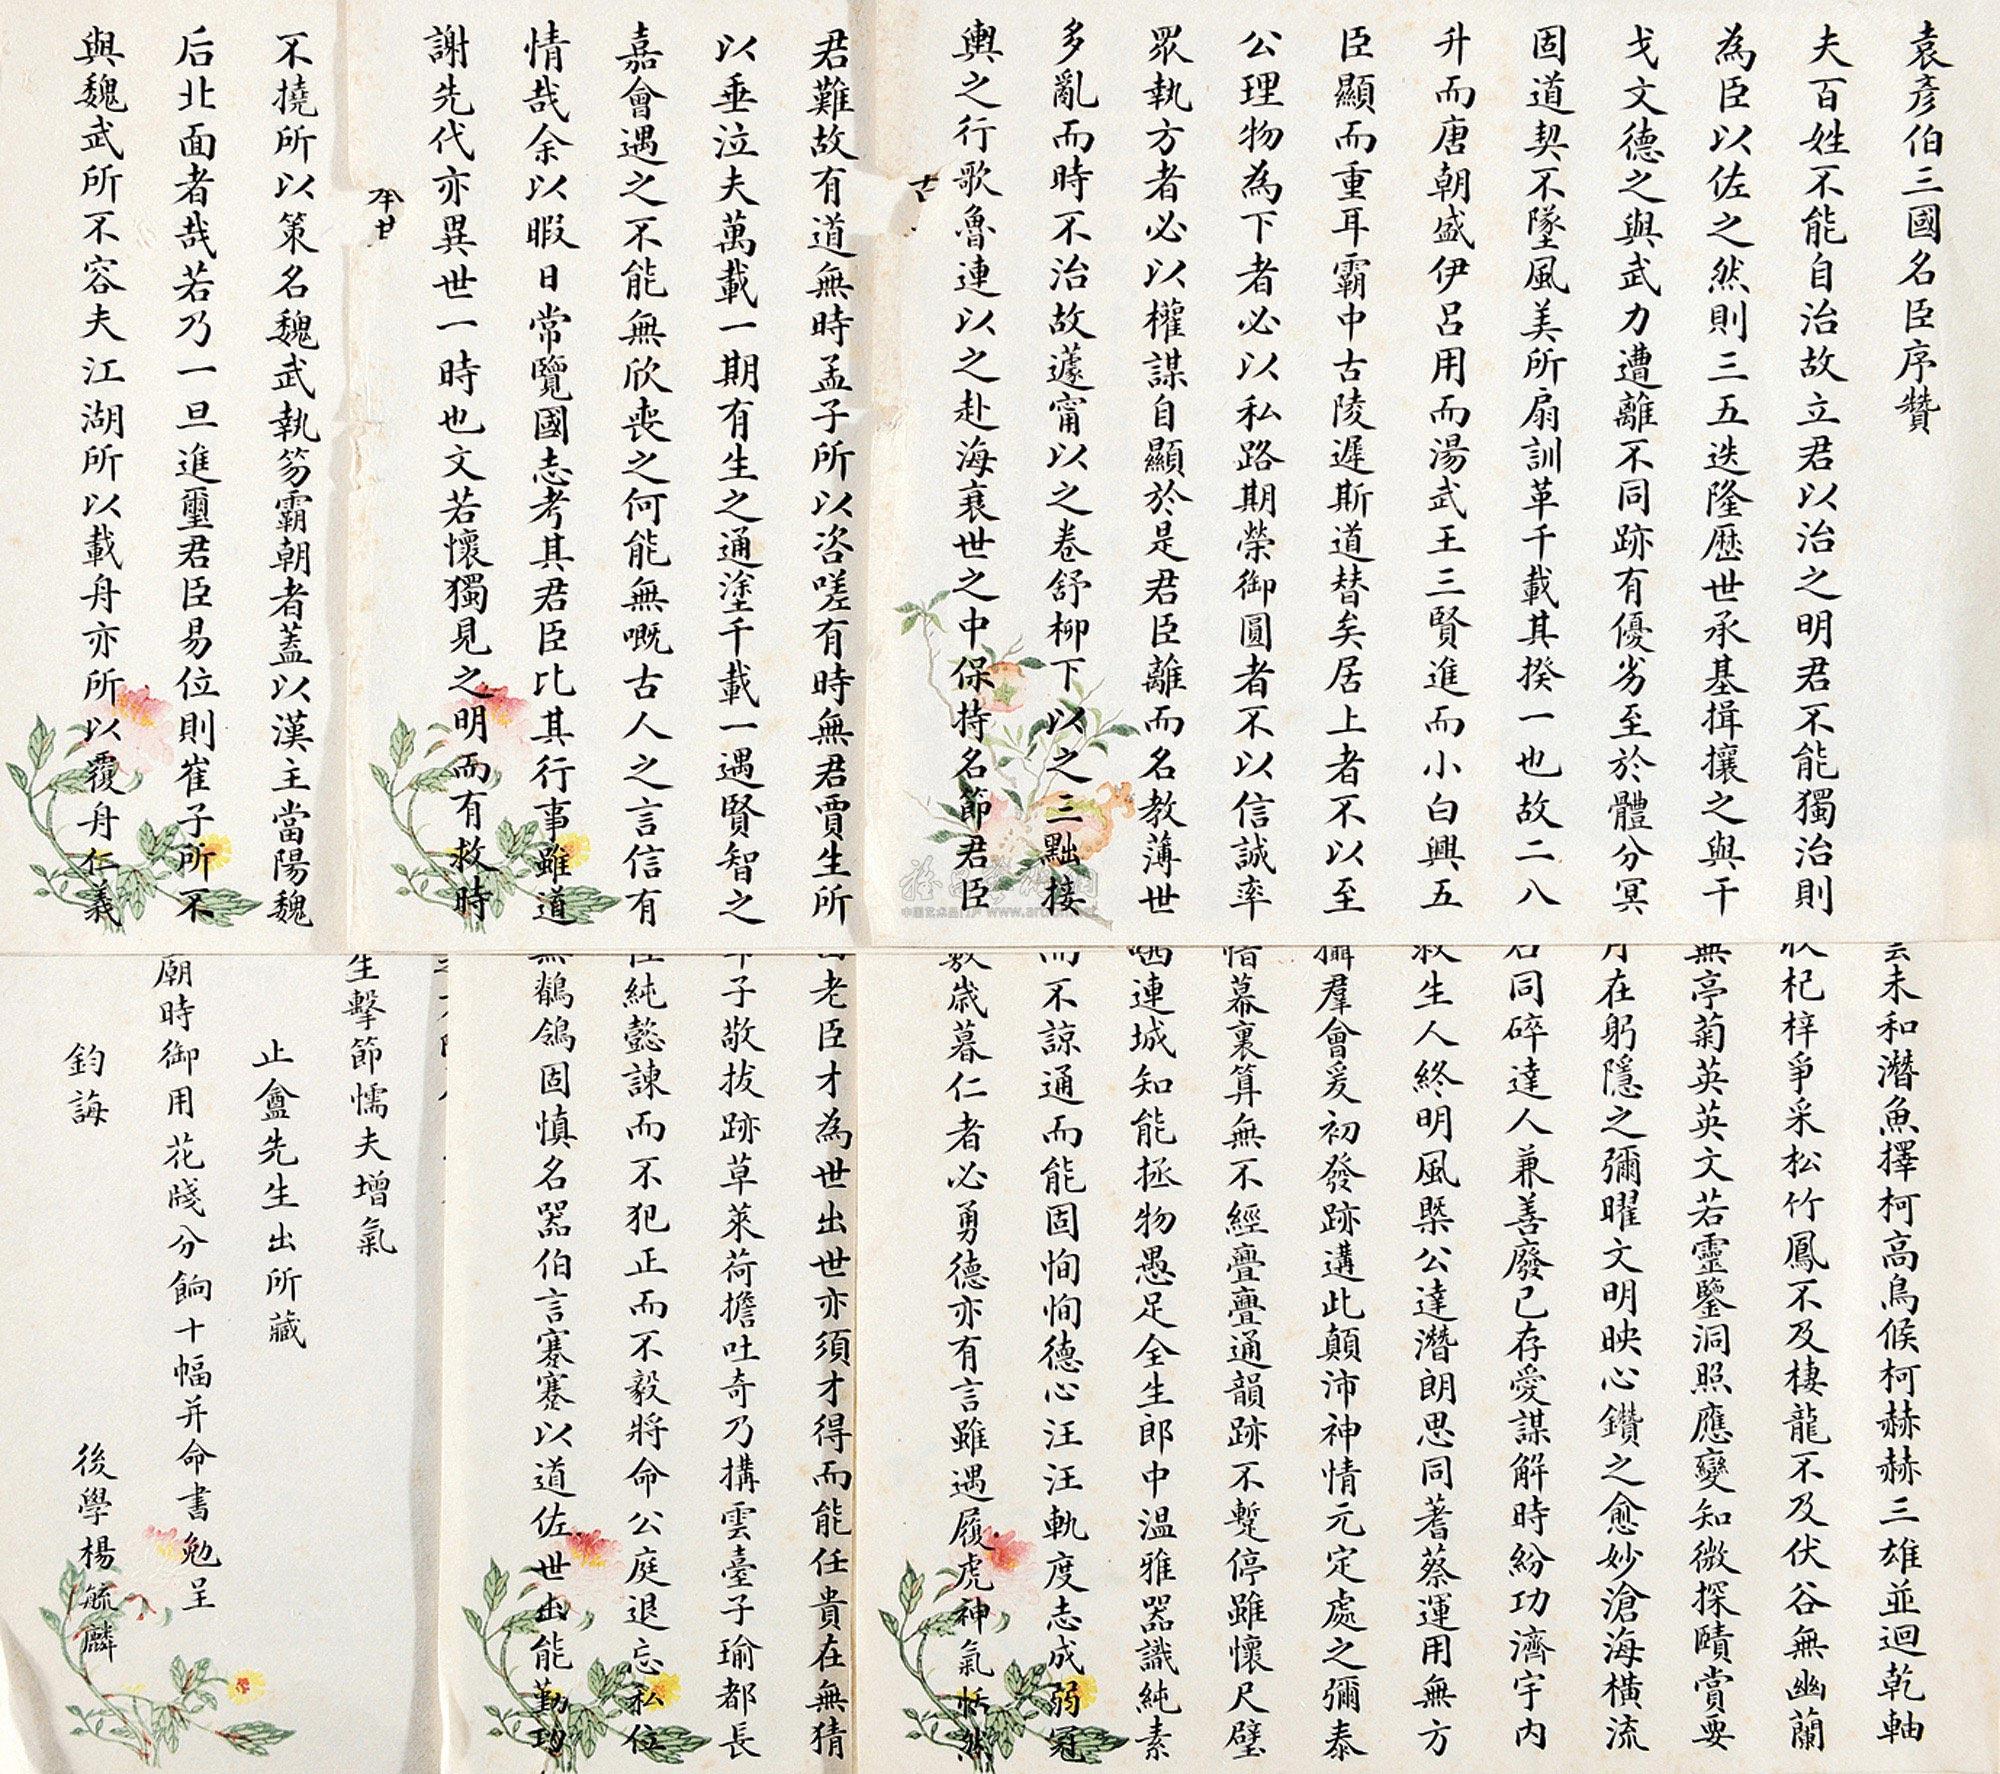 袁彥伯三國名臣序贊
夫百姓不能自治故立君以治之明君不能獨治則
為臣以佐之然則三五迭隆歷世承基揖攘之與干
戈文德之與武力遭離不同跡有優劣至於體分冥
固道契不墜風美所扇訓革千載其揆一也故二八
升而唐朝盛伊呂用而湯武王三賢進而小白興五
臣顯而重耳霸中古陵遲斯道替矣居上者不以至
公理物為下者必以私路期榮御圓者不以信誠率
眾執方者必以權謀自顯於是君臣離而名教薄世
多亂而時不治故蘧甯以之卷舒柳下以之三黜接
輿之行歌魯連以之赴海衰世之中保持名節君臣
君難故有道無時孟子所以咨嗟有時無君賈生所
以垂泣夫萬載一期有生之通塗千載一遇賢智之
嘉會遇之不能無欣喪之何能無嘅古人之言信有
情哉余以暇日常覽國志考其君臣比其行事雖道
謝先代亦異世一時也文若懷獨見之明而有救時
不撓所以策名魏武執笏霸朝者蓋以漢主當陽魏
后北面者哉若乃一旦進璽君臣易位則崔子所不
與魏武所不容夫江湖所以載舟亦所以覆舟仁義
未和潛魚擇柯高鳥候柯赫赫三雄並迴乾軸
杞梓爭采松竹鳳不及棲龍不及伏谷無幽蘭
無亭菊英英文若靈鑒洞照應變知微探賾賞要
月在躬隱之彌曜文明映心鑽之愈妙滄海橫流
石同碎達人兼善廢己存愛謀解時紛功濟宇內
救生人終明風槩公達潛朗思同蓍蔡運用無方
攝羣會爰初發跡遘此顛沛神情元定處之彌泰
愔幕裏算無不經亹亹通韻跡不蹔停雖懷尺璧
哂連城知能拯物愚足全生郎中溫雅器識純素
而不諒通而能固恂恂德心汪汪軌度志成弱冠
敷歲暮仁者必勇德亦有言雖遇履虎神氣恬然
老臣才為世出世亦須才得而能任貴在無猜
子敬拔跡草萊荷擔吐奇乃構雲臺子瑜都長
純懿諫而不犯正而不毅將命公庭退忘私位
無鶺鴒固慎名器伯言謇謇以道佐世出能勤功
生擊節懦夫增氣
止盦先生出所藏
廟時御用花牋分餉十幅并命書勉呈
鈞誨
後學楊毓麟